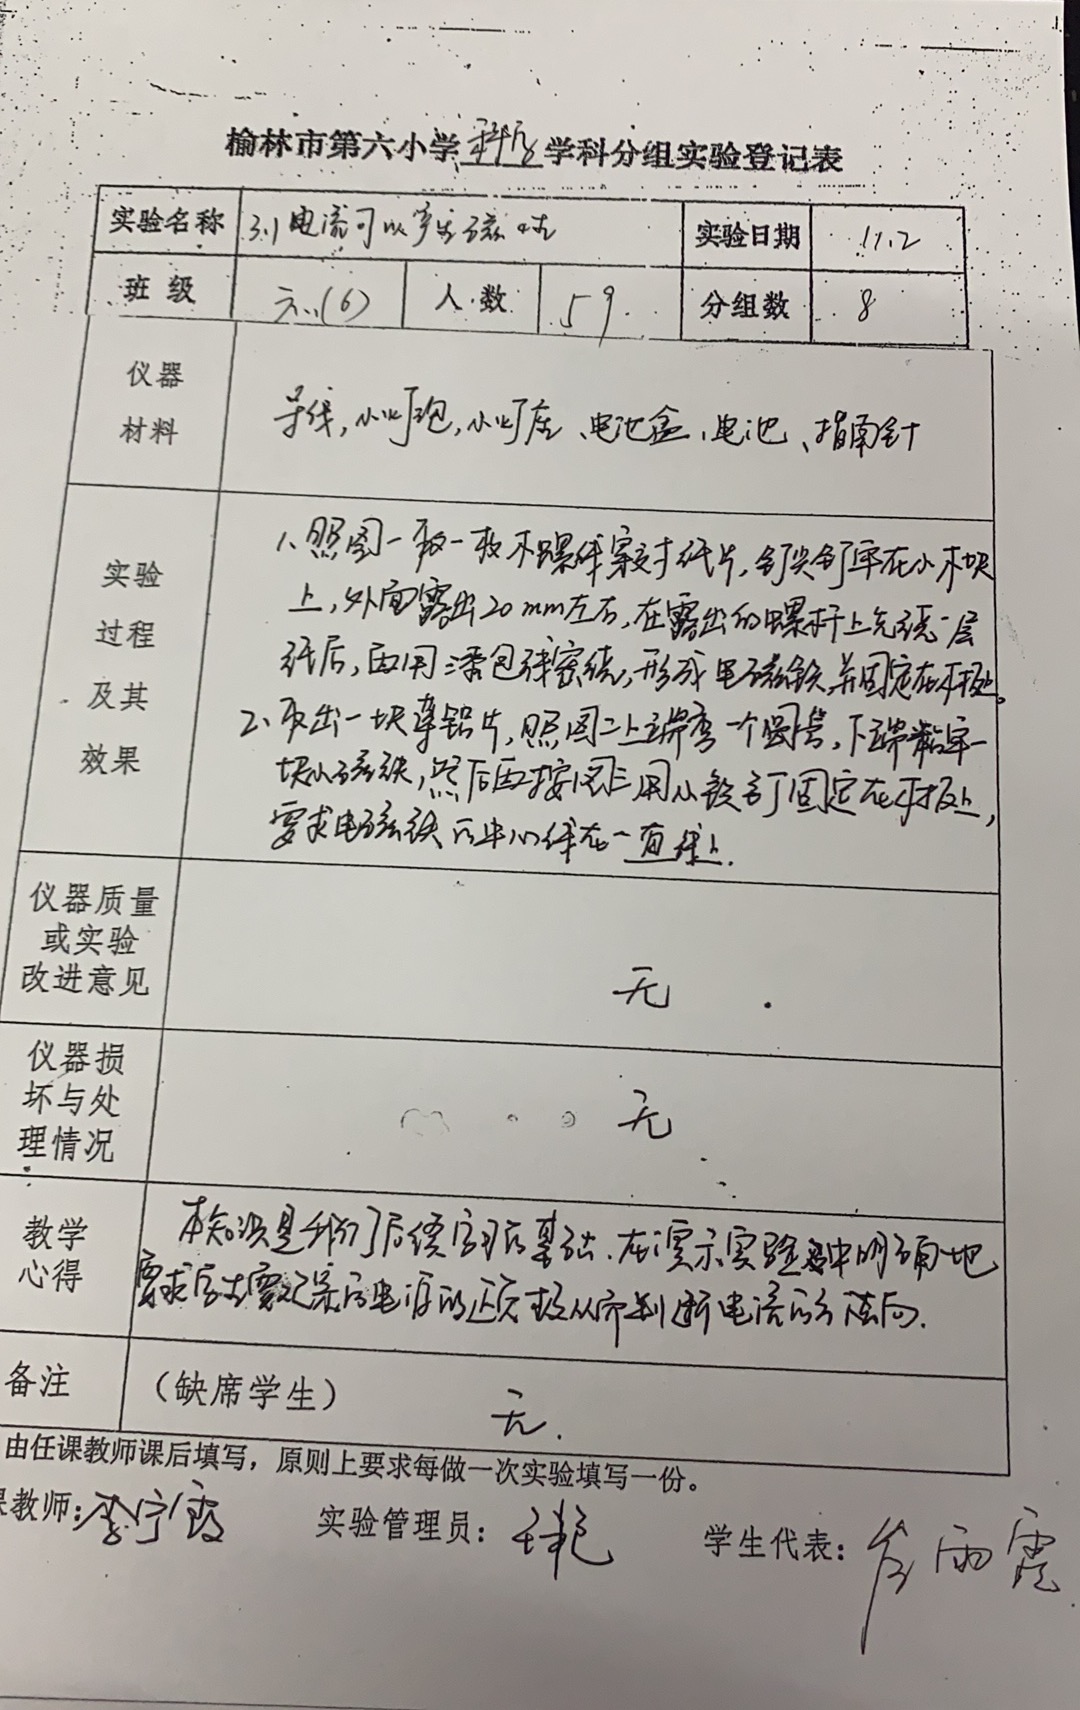 榆林市第六小学科学学科分组实验登记表
实验名称 3.1电流可以产生磁性 实验日期 11.2
班级 六.(6) 人数 59. 分组数 8
仪器
材料
导线,小灯泡,小灯座、电池盒、电池、指南针
实验
过程
及其
效果
1、照图一取一枚木螺丝穿过纸片,钉牢在小木块
上,外面露出20mm左右,在露出的螺杆上先绕一层
纸后,再用漆包线密绕,形成电磁铁并固定在木板上。
2、取出一块薄铝片,照图二上端弯一个圆筒,下端粘牢一
块小磁铁,然后再按图三用小铁钉固定在木板上,
要求电磁铁的中心线在一直线上.
仪器质量
或实验
改进意见
无
仪器损
坏与处
理情况
无
教学
心得
本知识是我们后续学习的基础.在演示实验中明确地
要求学生要记录电源的正负极从而判断电流的方向.
备注 (缺席学生) 无.
由任课教师课后填写,原则上要求每做一次实验填写一份。
课教师: 李宁霞 实验管理员: 学生代表: 雨霞